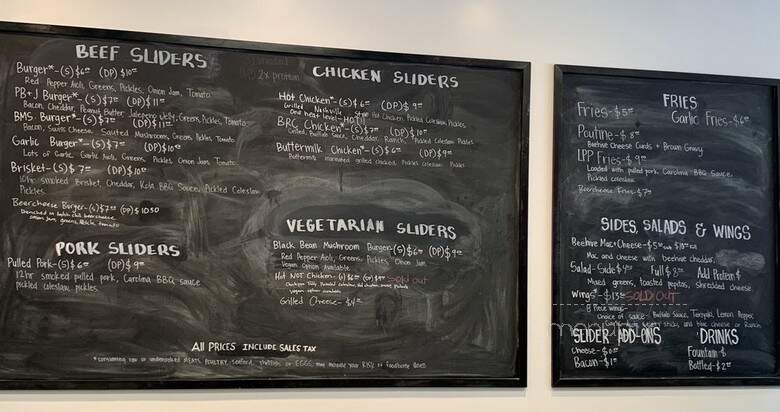 BEEF SLIDERS
Burger*-(S)$6⁰⁰ (DP)$10⁰⁰
Red Pepper Aioli, Greens, Pickles, Onion Jam, Tomato
PB+J Burger*-(S)$7⁰⁰ (DP)$11⁰⁰
Bacon, Cheddar, Peanut Butter, Jalapeno Jelly, Greens, Pickles, Tomato
BMS Burger*-(S)$7⁰⁰ (DP)$11⁰⁰
Bacon, Swiss Cheese, Sauteed Mushrooms, Greens, Pickles, Tomato
Garlic Burger*-(S)$7⁰⁰ (DP)$10⁰⁰
Lots of Garlic, Garlic Aioli, Greens, Pickles, Onion Jam, Tomato
Brisket-(S)$7⁰⁰ (DP)$10⁰⁰
10hr smoked Brisket, Cheddar, Kola BBQ Sauce, Pickled Celeslaw,
Pickles
Beercheese Burger-(S)$7⁰⁰ (DP)$10.50
Drenched in beercheese
onion jam, greens, tomato
PORK SLIDERS
Pulled Pork-(S)$6⁰⁰ (DP)$9⁰⁰
12hr smoked pulled pork, Carolina BBQ sauce
pickled celeslaw, pickles
2x protein
CHICKEN SLIDERS
Hot Chicken*-(S)$6⁰⁰ (DP)$9⁰⁰
Grilled Nashville Style Hot Chicken, Pickled Celeslaw, Pickles
One heat level-HOT!
BRC Chicken*-(S)$7⁰⁰ (DP)$10⁰⁰
Grilled, Buffalo Sauce, Cheddar, Ranch, Pickled Celeslaw, Pickles
Buttermilk Chicken*-(S)$6⁰⁰ (DP)$9⁰⁰
Buttermilk marinated grilled chicken, Pickled Celeslaw, Pickles
VEGETARIAN SLIDERS
Black Bean Mushroom Burger-(S)$6⁰⁰ (DP)$9⁰⁰
Red Pepper Aioli, Greens, Pickles, Onion Jam
Vegan Option Available
Hot NOT Chicken-(S)$6⁰⁰ (DP)$9⁰⁰ SOLD OUT
Chickpea Patty, Pickled Celeslaw, Pickles
Vegan option available
Grilled Cheese-$4⁰⁰
All PRICES INCLUDE SALES TAX
*consuming raw or undercooked MEATS, POULTRY, seafood, shellfish, or EGGS may increase your RISK of foodborne illness
FRIES
Fries-$5⁰⁰ Garlic Fries-$6⁰⁰
Poutine-$8⁰⁰
Beehive Cheese Curds + Brown Gravy
LPP Fries-$9⁰⁰
Loaded with pulled pork, Carolina BBQ Sauce,
Pickled celeslaw
Beercheese Fries-$7⁰⁰
SIDES, SALADS & WINGS
Beehive Mac+Cheese-$5⁰⁰
Mac and cheese with beehive cheddar
Salad-Side $4⁰⁰ Full $8⁰⁰ Add Protein $
Mixed greens, toasted pepitas, shredded cheese
Wings*-$13⁰⁰ SOLD OUT
8 Piece wing-
Choice of sauce: Buffalo Sauce, Teriyaki, Lemon Pepper,
sticks, and blue cheese or Ranch
SLIDER ADD-ONS
Cheese-$0⁵⁰
Bacon-$1⁰⁰
DRINKS
Fountain-$
Bottled-$2⁰⁰